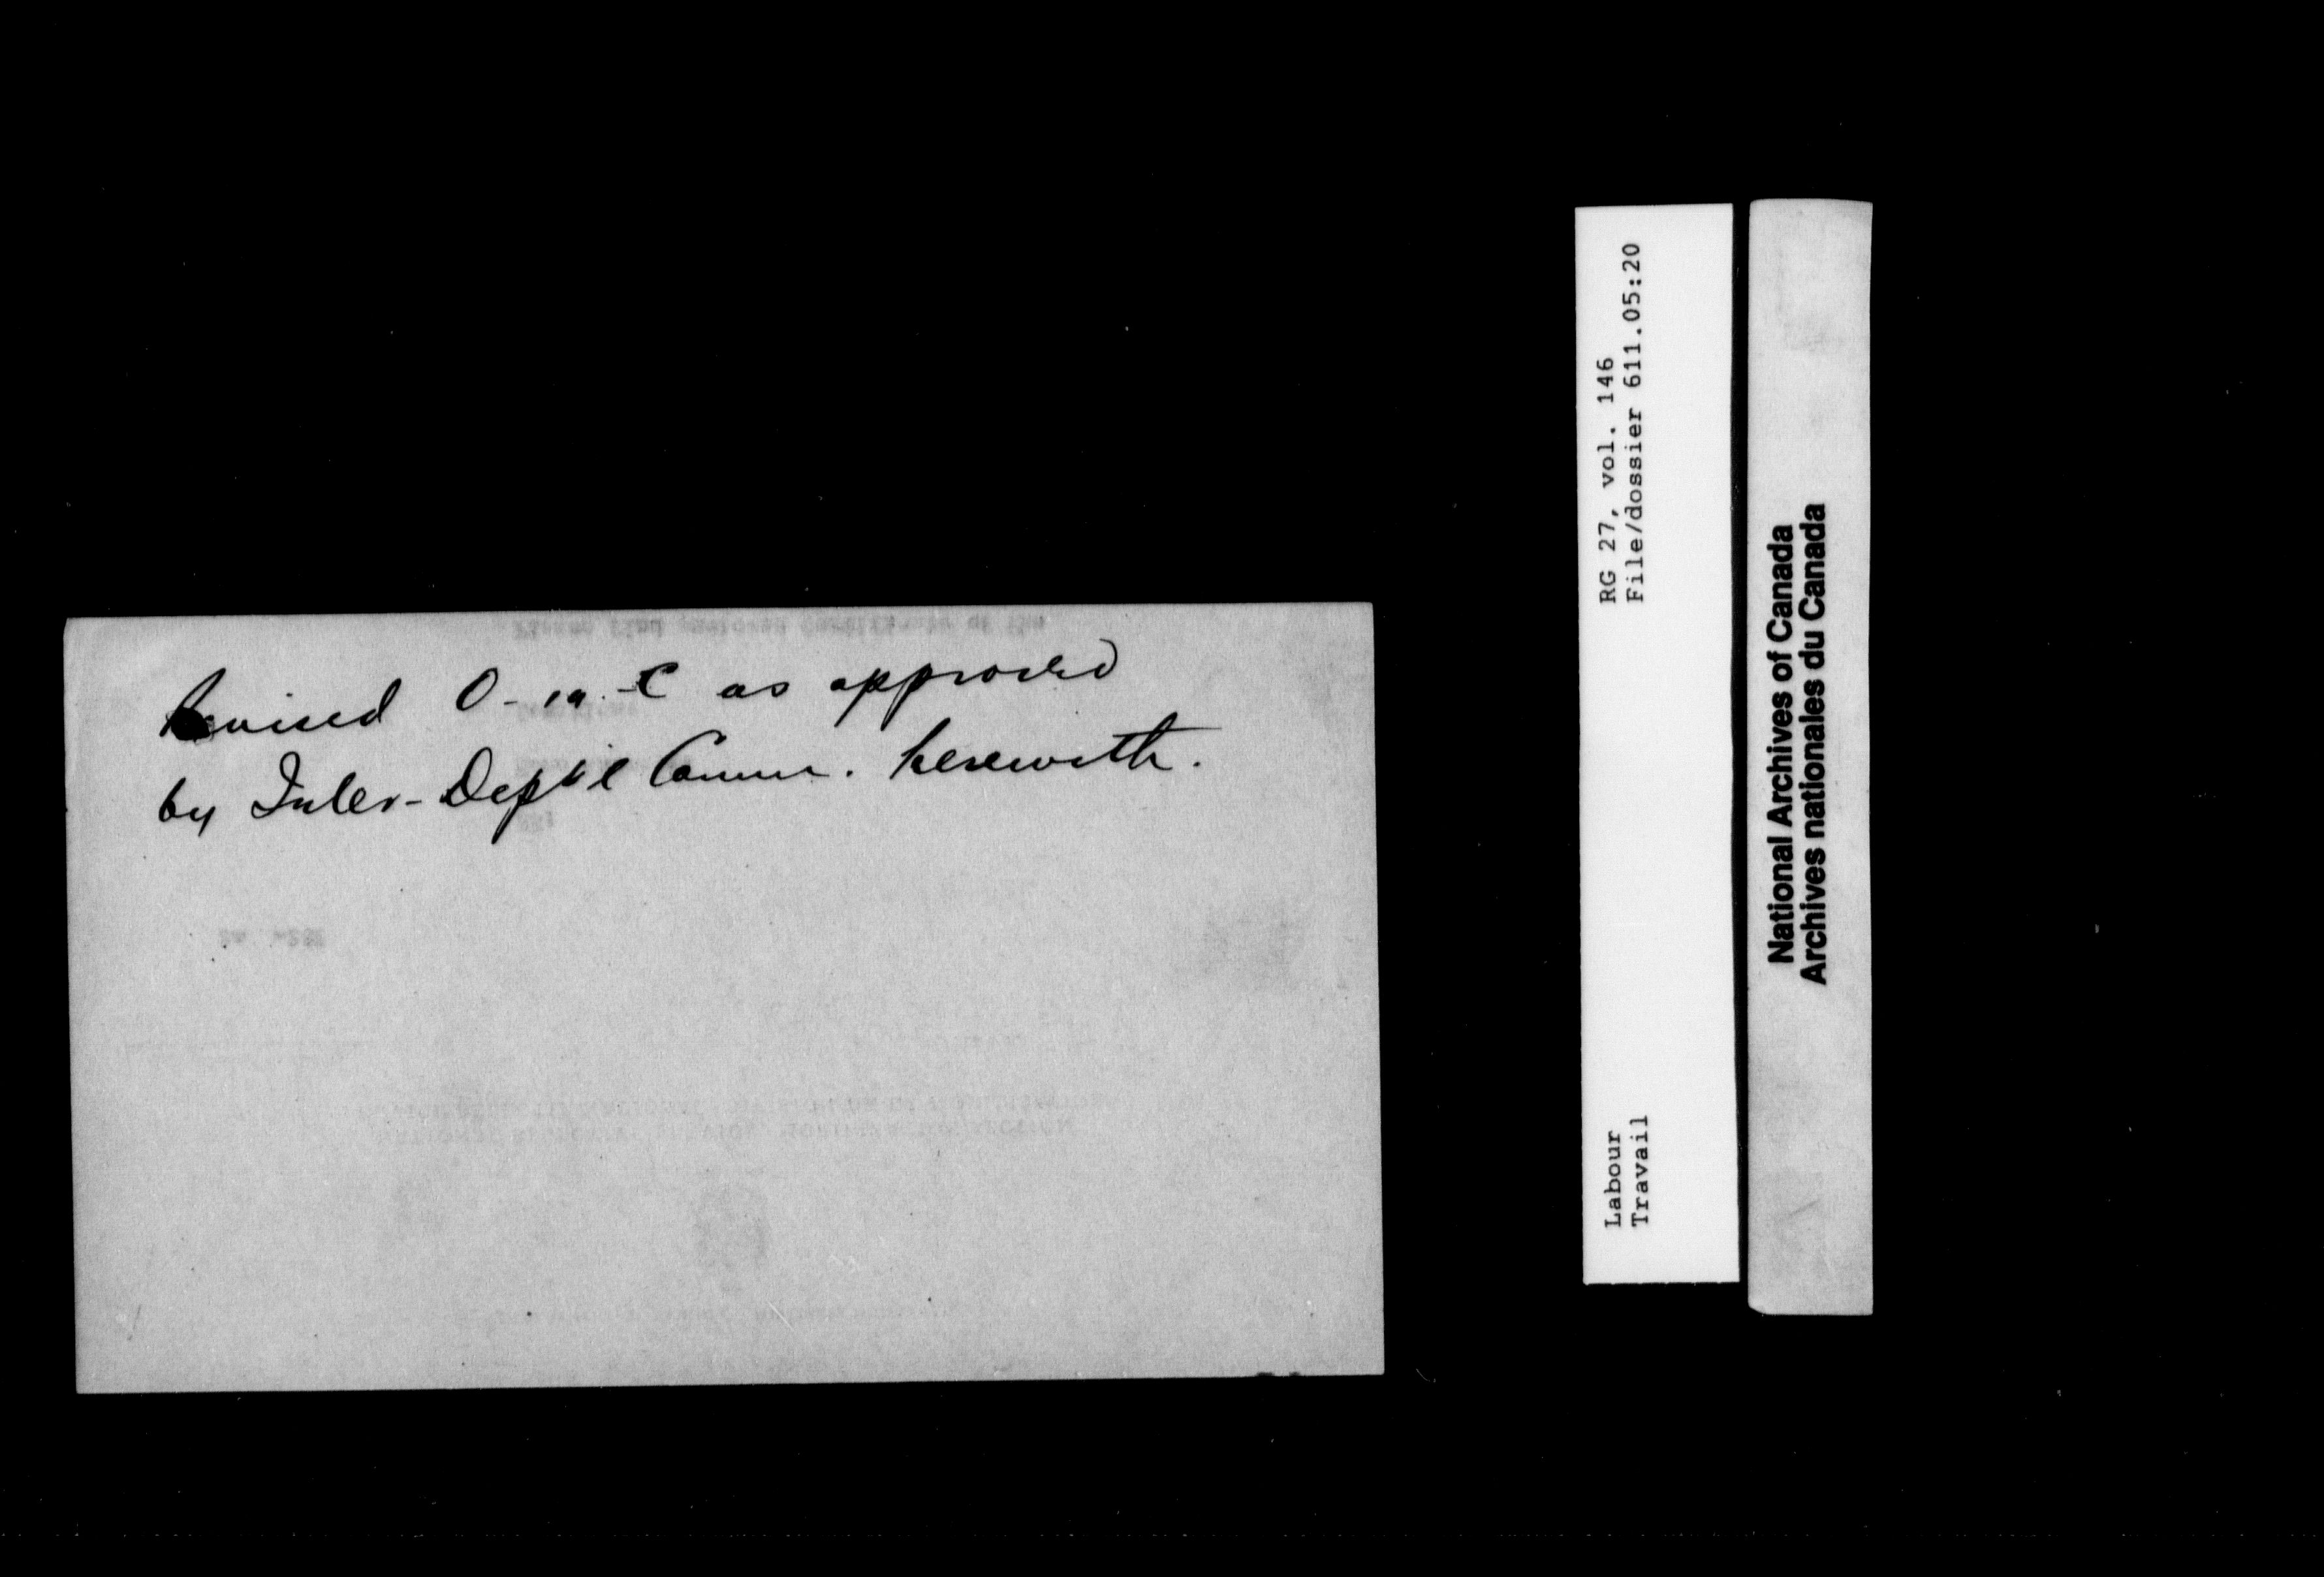 Revised O-in-C as approved
by Inter-Dept'l Comm. herewith.
RG 27, vol. 146
File/dossier 611.05:20
Labour
Travail
National Archives of Canada
Archives nationales du Canada